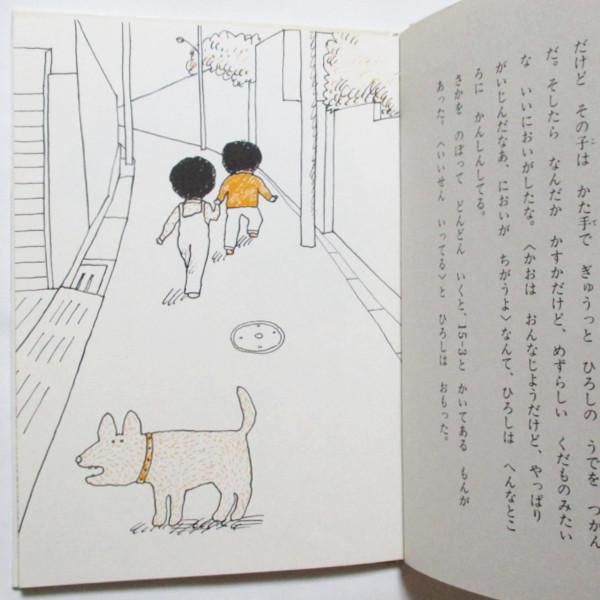 だけど その子は かた手で ぎゅうっと ひろしの うでを つかん
だ。そしたら なんだか かすかだけど、めずらしい くだものみたい
な いいにおいがしたな。〈かおは おんなじようだけど、やっぱり
がいじんだなあ、においが ちがうよ〉なんて、ひろしは へんなとこ
ろに かんしんしてる。
さかを のぼって どんどん いくと、15-3と かいてある もんが
あった。〈いいせん いってる〉と ひろしは おもった。